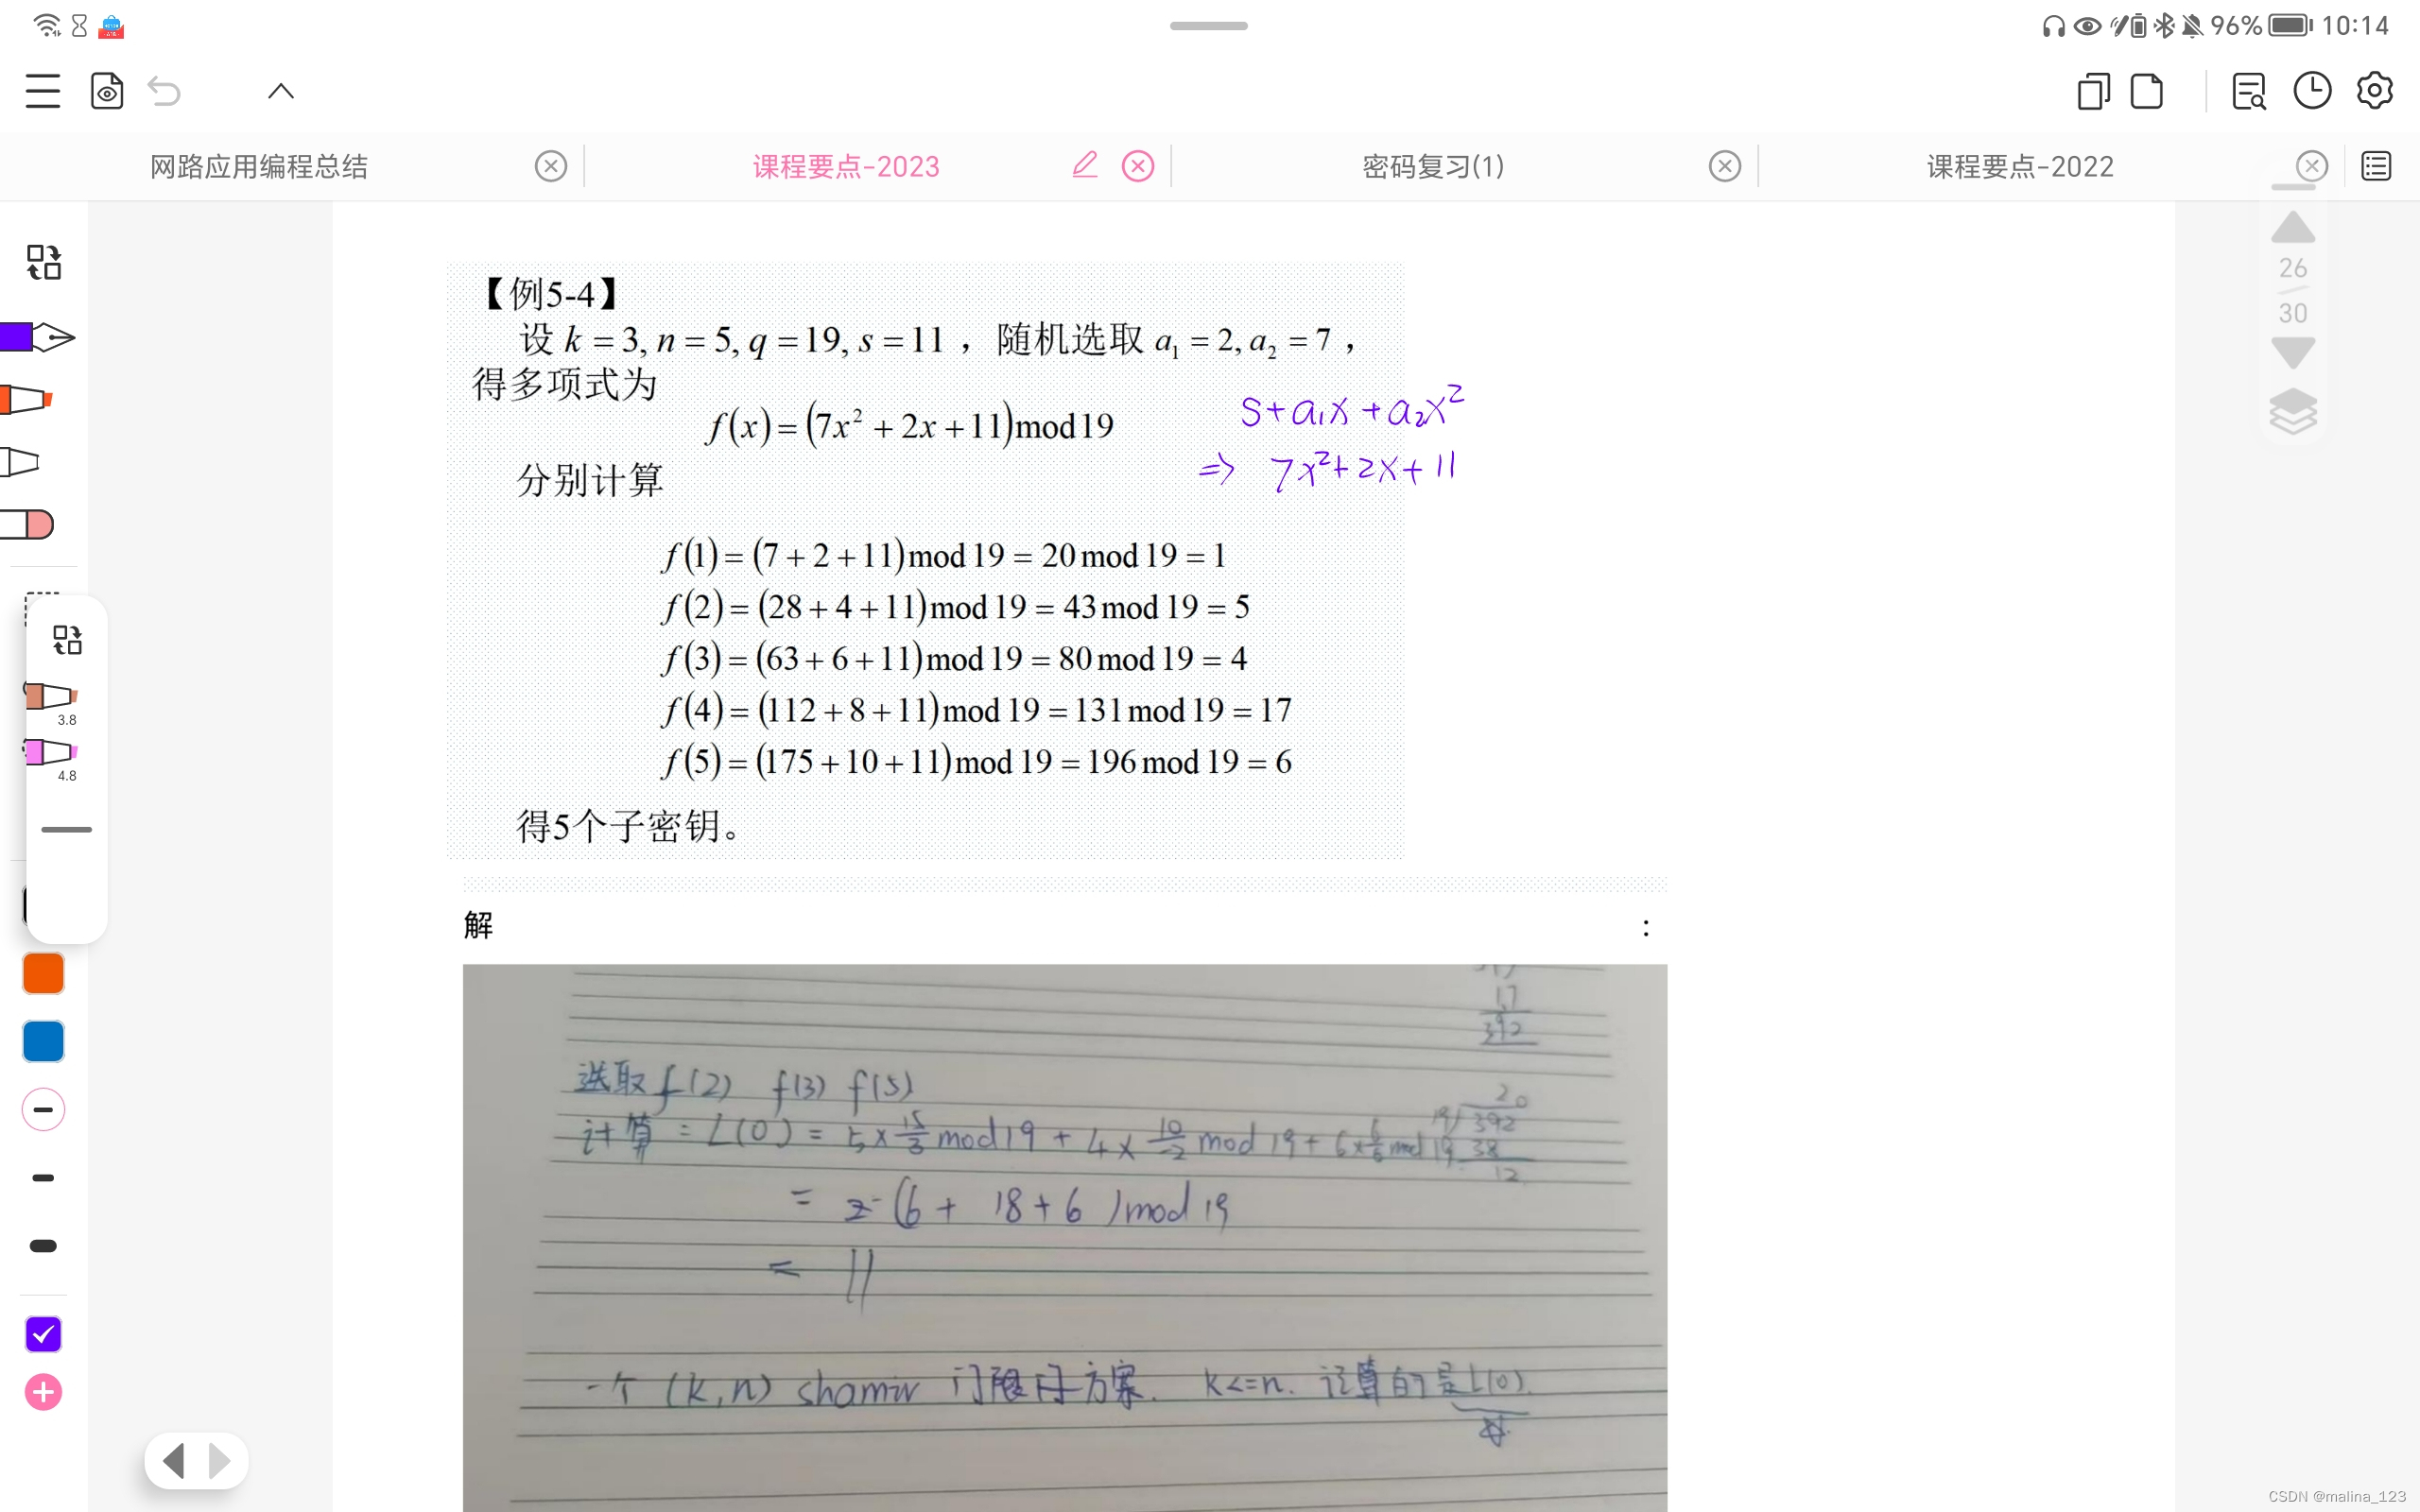 96% 10:14
网路应用编程总结
课程要点-2023
密码复习(1)
课程要点-2022
26
30
【例5-4】
设 k = 3, n = 5, q = 19, s = 11 ，随机选取 a₁ = 2, a₂ = 7 ，
得多项式为
f(x) = (7x² + 2x + 11) mod 19
S + a₁x + a₂x²
⇒ 7x² + 2x + 11
分别计算
f(1) = (7 + 2 + 11) mod 19 = 20 mod 19 = 1
f(2) = (28 + 4 + 11) mod 19 = 43 mod 19 = 5
f(3) = (63 + 6 + 11) mod 19 = 80 mod 19 = 4
f(4) = (112 + 8 + 11) mod 19 = 131 mod 19 = 17
f(5) = (175 + 10 + 11) mod 19 = 196 mod 19 = 6
得5个子密钥。
3.8
4.8
解 ：
17
392
选取 f(2) f(3) f(5)
计算 = L(0) = 5 × 15/3 mod 19 + 4 × 10/-2 mod 19 + 6 × 6/6 mod 19
20
19 392
38
12
= (6 + 18 + 6) mod 19
= 11
一个 (k, n) shamir 门限 方案. k<=n. 计算的是L(0).
CSDN @malina_123